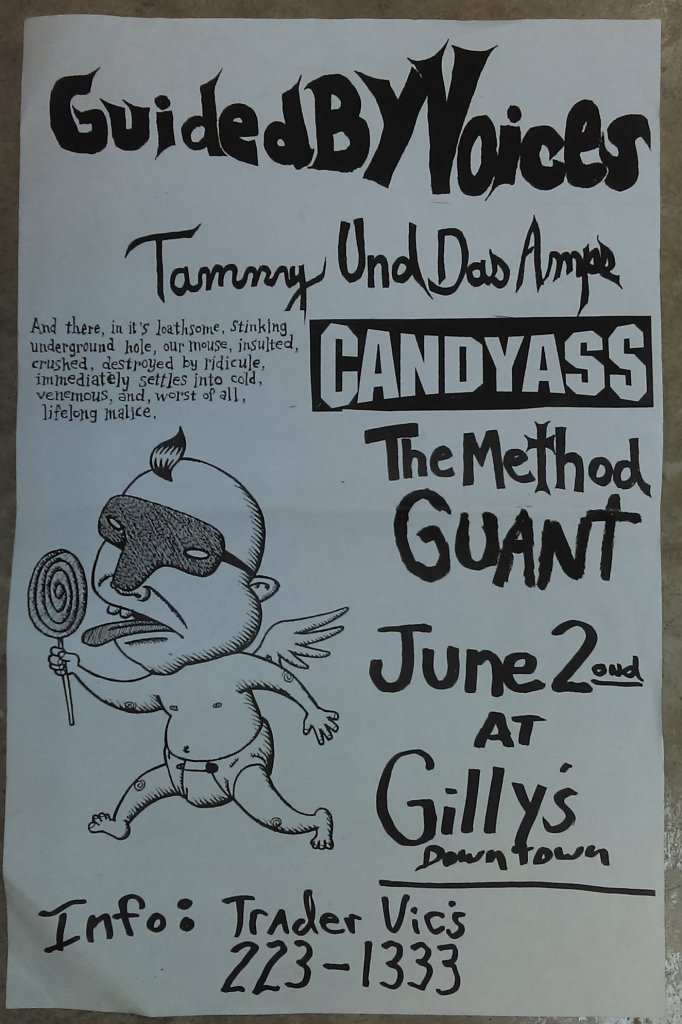 GuidedBYVoices
Tammy Und Das Amps
And there, in it's loathsome, stinking
underground hole, our mouse, insulted,
crushed, destroyed by ridicule,
immediately settles into cold,
venomous, and, worst of all,
lifelong malice.
CANDYASS
The Method
GUANT
June 2ond
AT
Gilly's
Downtown
Info: Trader Vic's
223-1333